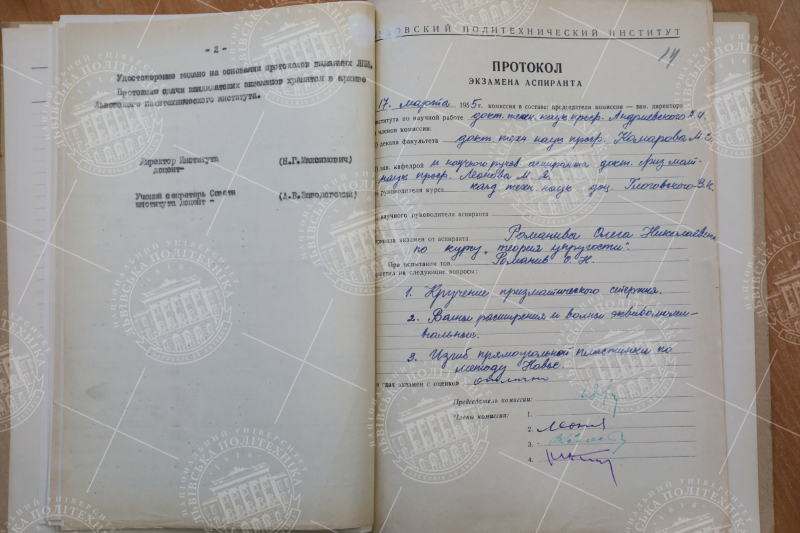 - 2 -
Удостоверение выдано на основании протоколов
Протоколы сдачи кандидатских экзаменов хранятся в архиве
Львовского политехнического института.
Директор Института
доцент-
(Н.Г.Максимович)
Ученый секретарь Совета
института доцент -
ОВСКИЙ ПОЛИТЕХНИЧЕСКИЙ ИНСТИТУТ
ПРОТОКОЛ
ЭКЗАМЕНА АСПИРАНТА
17. марта 1955г. комиссия в составе: председателя комиссии — зам. директора
института по научной работе докт. техн. наук проф. Андриевского
и членов комиссии:
декана факультета докт. техн. наук проф. Комарова М.С.
зав. кафедрой и научного руков. аспиранта докт. физ. мат-
наук проф. Леонова М. Я.
руководителя курса канд. техн. наук доц.
научного руководителя аспиранта
экзамен от аспиранта Романива Олега Николаевича
по курсу „теория упругости".
При испытании тов. Романив О. Н.
ответил на следующие вопросы:
1. Кручение призматического стержня.
2. Волны расширения и волны эквиволюми-
нальные.
3. Изгиб прямоугольной пластинки по
методу Навье.
экзамен с оценкой отлично
Председатель комиссии:
Члены комиссии: 1.
2.
3.
4.
НАЦІОНАЛЬНИЙ УНІВЕРСИТЕТ
ЛЬВІВСЬКА ПОЛІТЕХНІКА